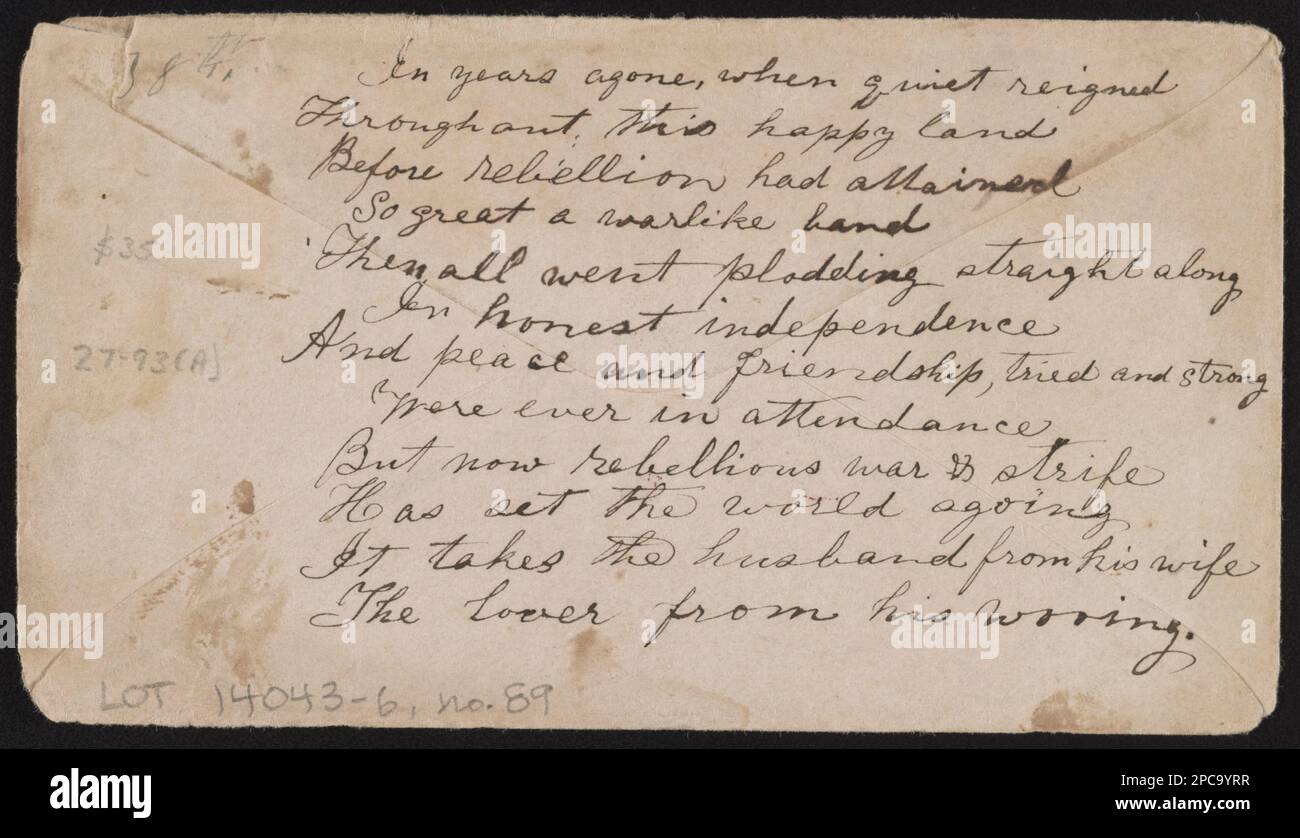 38th.
In years agone, when quiet reigned
Throughout, this happy land
Before rebellion had attained
So great a warlike band
$35
Then all went plodding straight along
In honest independence
And peace and friendship, tried and strong
27-93(A)
Were ever in attendance,
But now rebellious war & strife
Has set the world agoing
It takes the husband from his wife
The lover from his wooing.
LOT 14043-6, no. 89
alamy
alamy
alamy
alamy
alamy
alamy
Image ID: 2PC9YRR
www.alamy.com